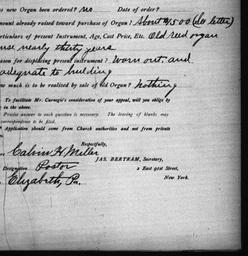 as new Organ been ordered? No Date of order?
mount already raised toward purchase of Organ? About $1500 (See letter)
articulars of present Instrument, Age, Cost Price, Etc. Old reed organ
use nearly thirty years
eason for disposing present instrument? Worn out and
adequate to building
ow much is to be realized by sale of old Organ? Nothing
To facilitate Mr. Carnegie's consideration of your appeal, will you oblige by
Precise answer to each question is necessary. The leaving of blanks may
correspondence to be filed.
Application should come from Church authorities and not from private
Respectfully,
Calvin H. Miller
JAS. BERTRAM, Secretary,
Designation Pastor 2 East 91st Street,
Elizabeth, Pa. New York.